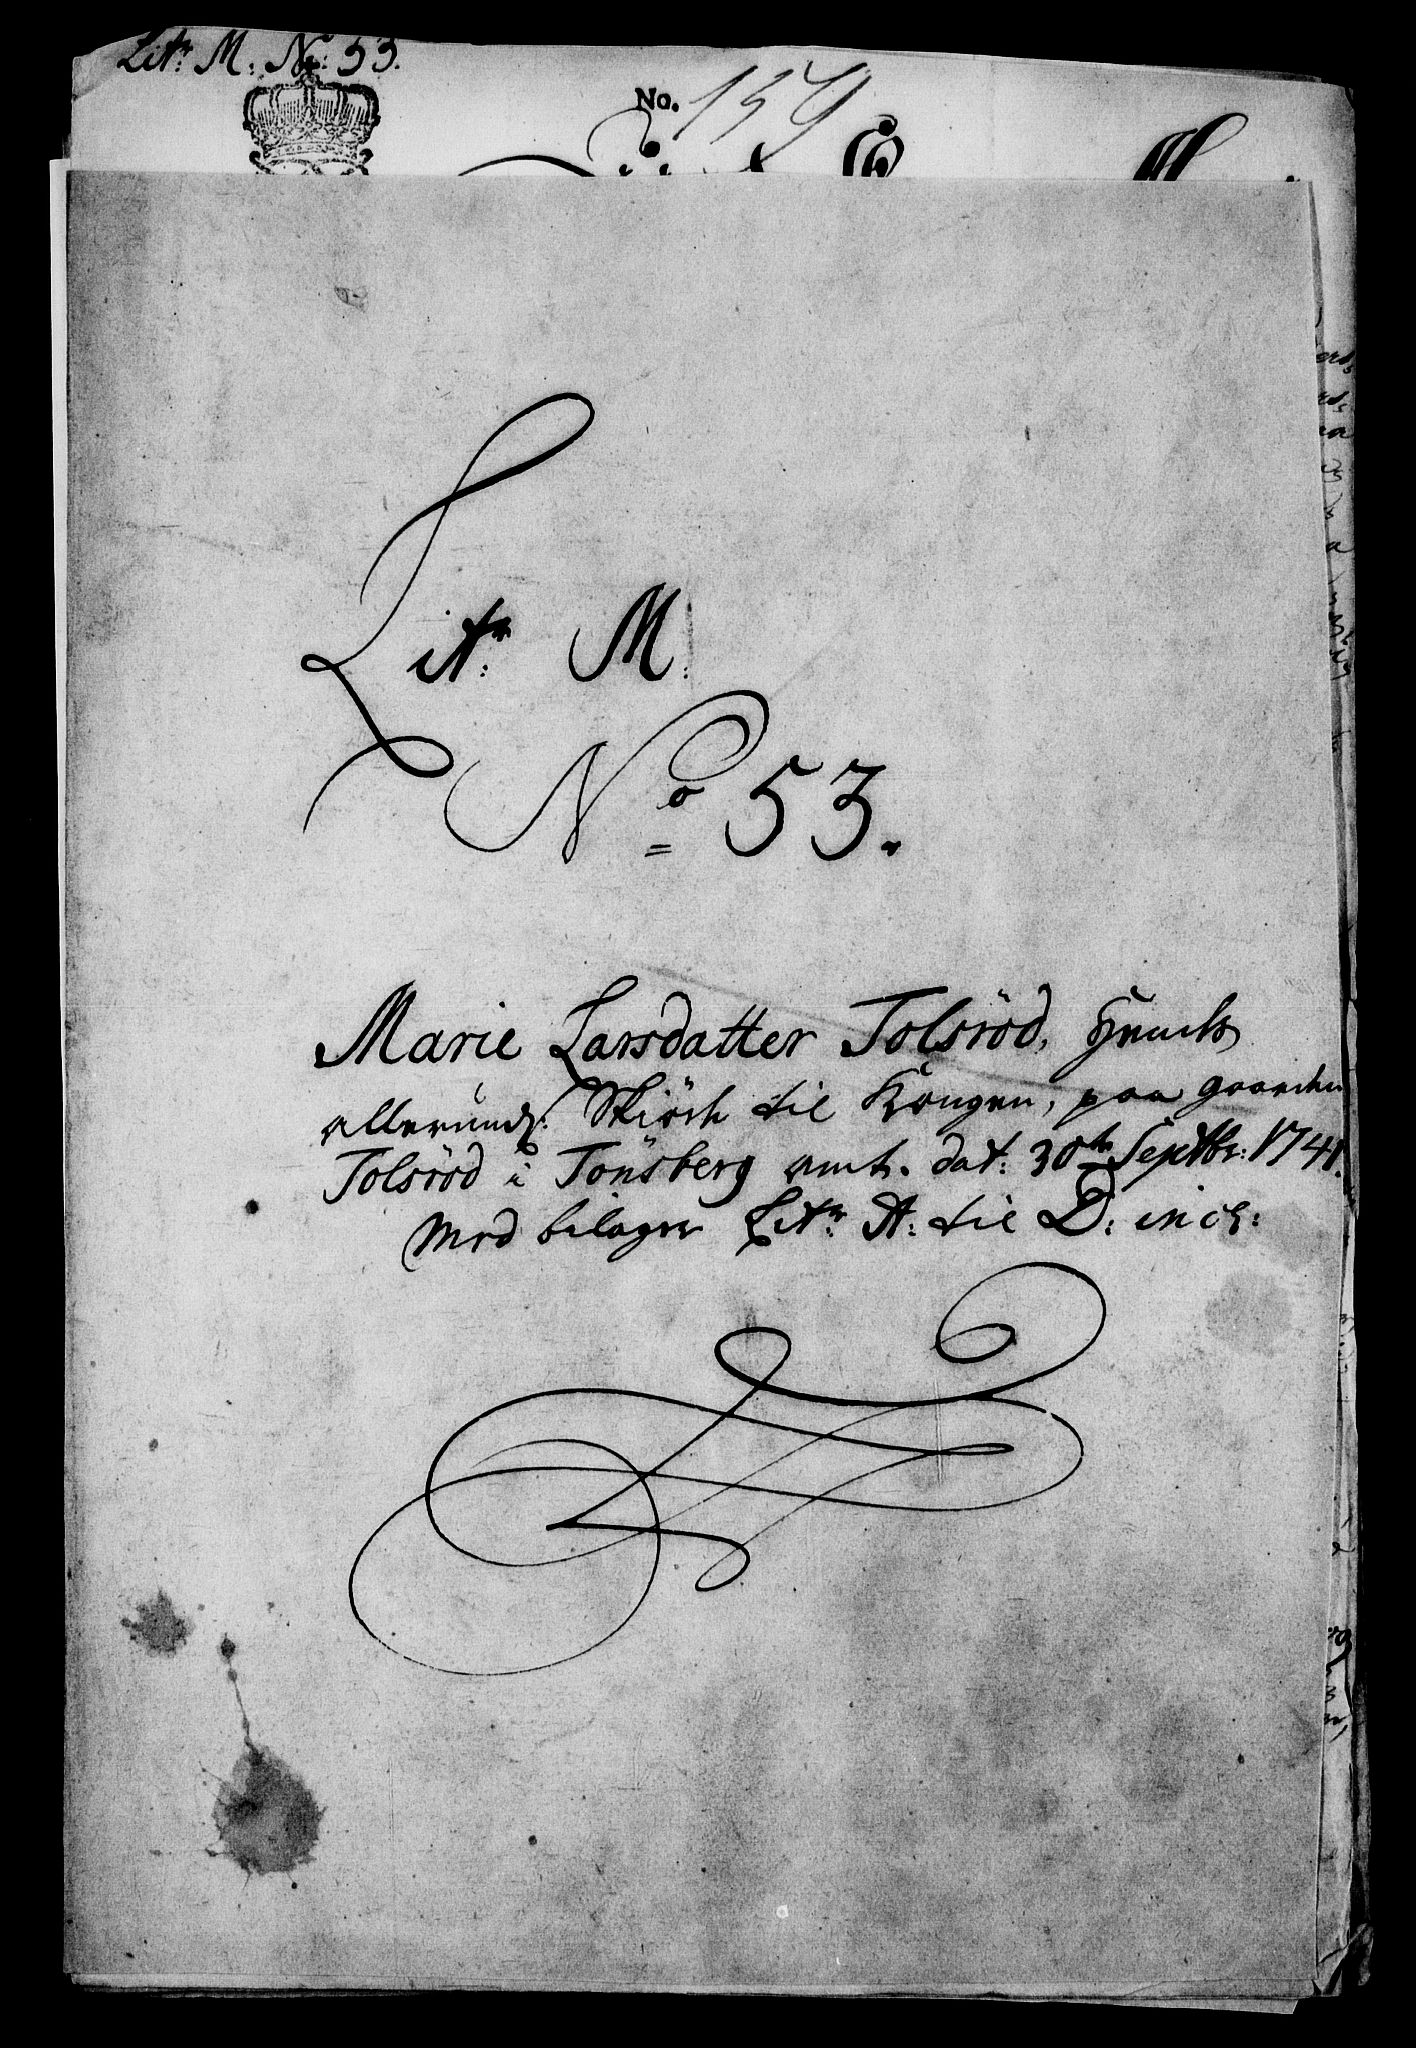 Litr: M: No: 53.
No. 159
Litr: M:
No 53.
Marie Larsdatter Tolsröd,
allerunds: Skiöde til Kongen, paa gaarden
Tolsröd i Tönsberg amt. dat: 30te Septbr: 1741.
Med bilager Litr: A: til D: incl: